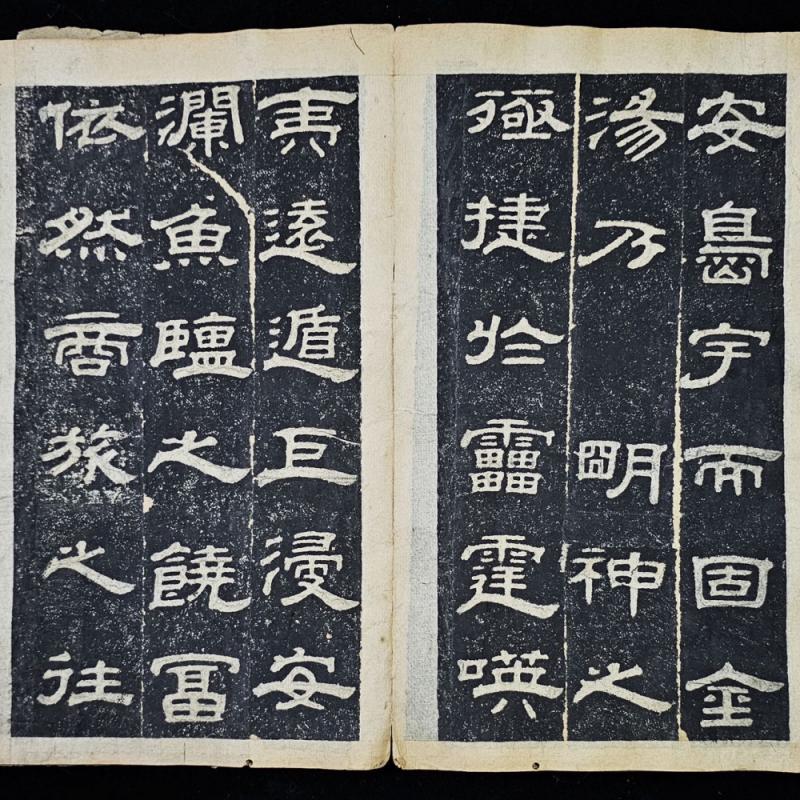 安島宇而固金
湯乃朙神之
殛捷於靁霆𠸄
夷遠遁巨浸安
瀾魚鹽之饒冨
依然商旅之往